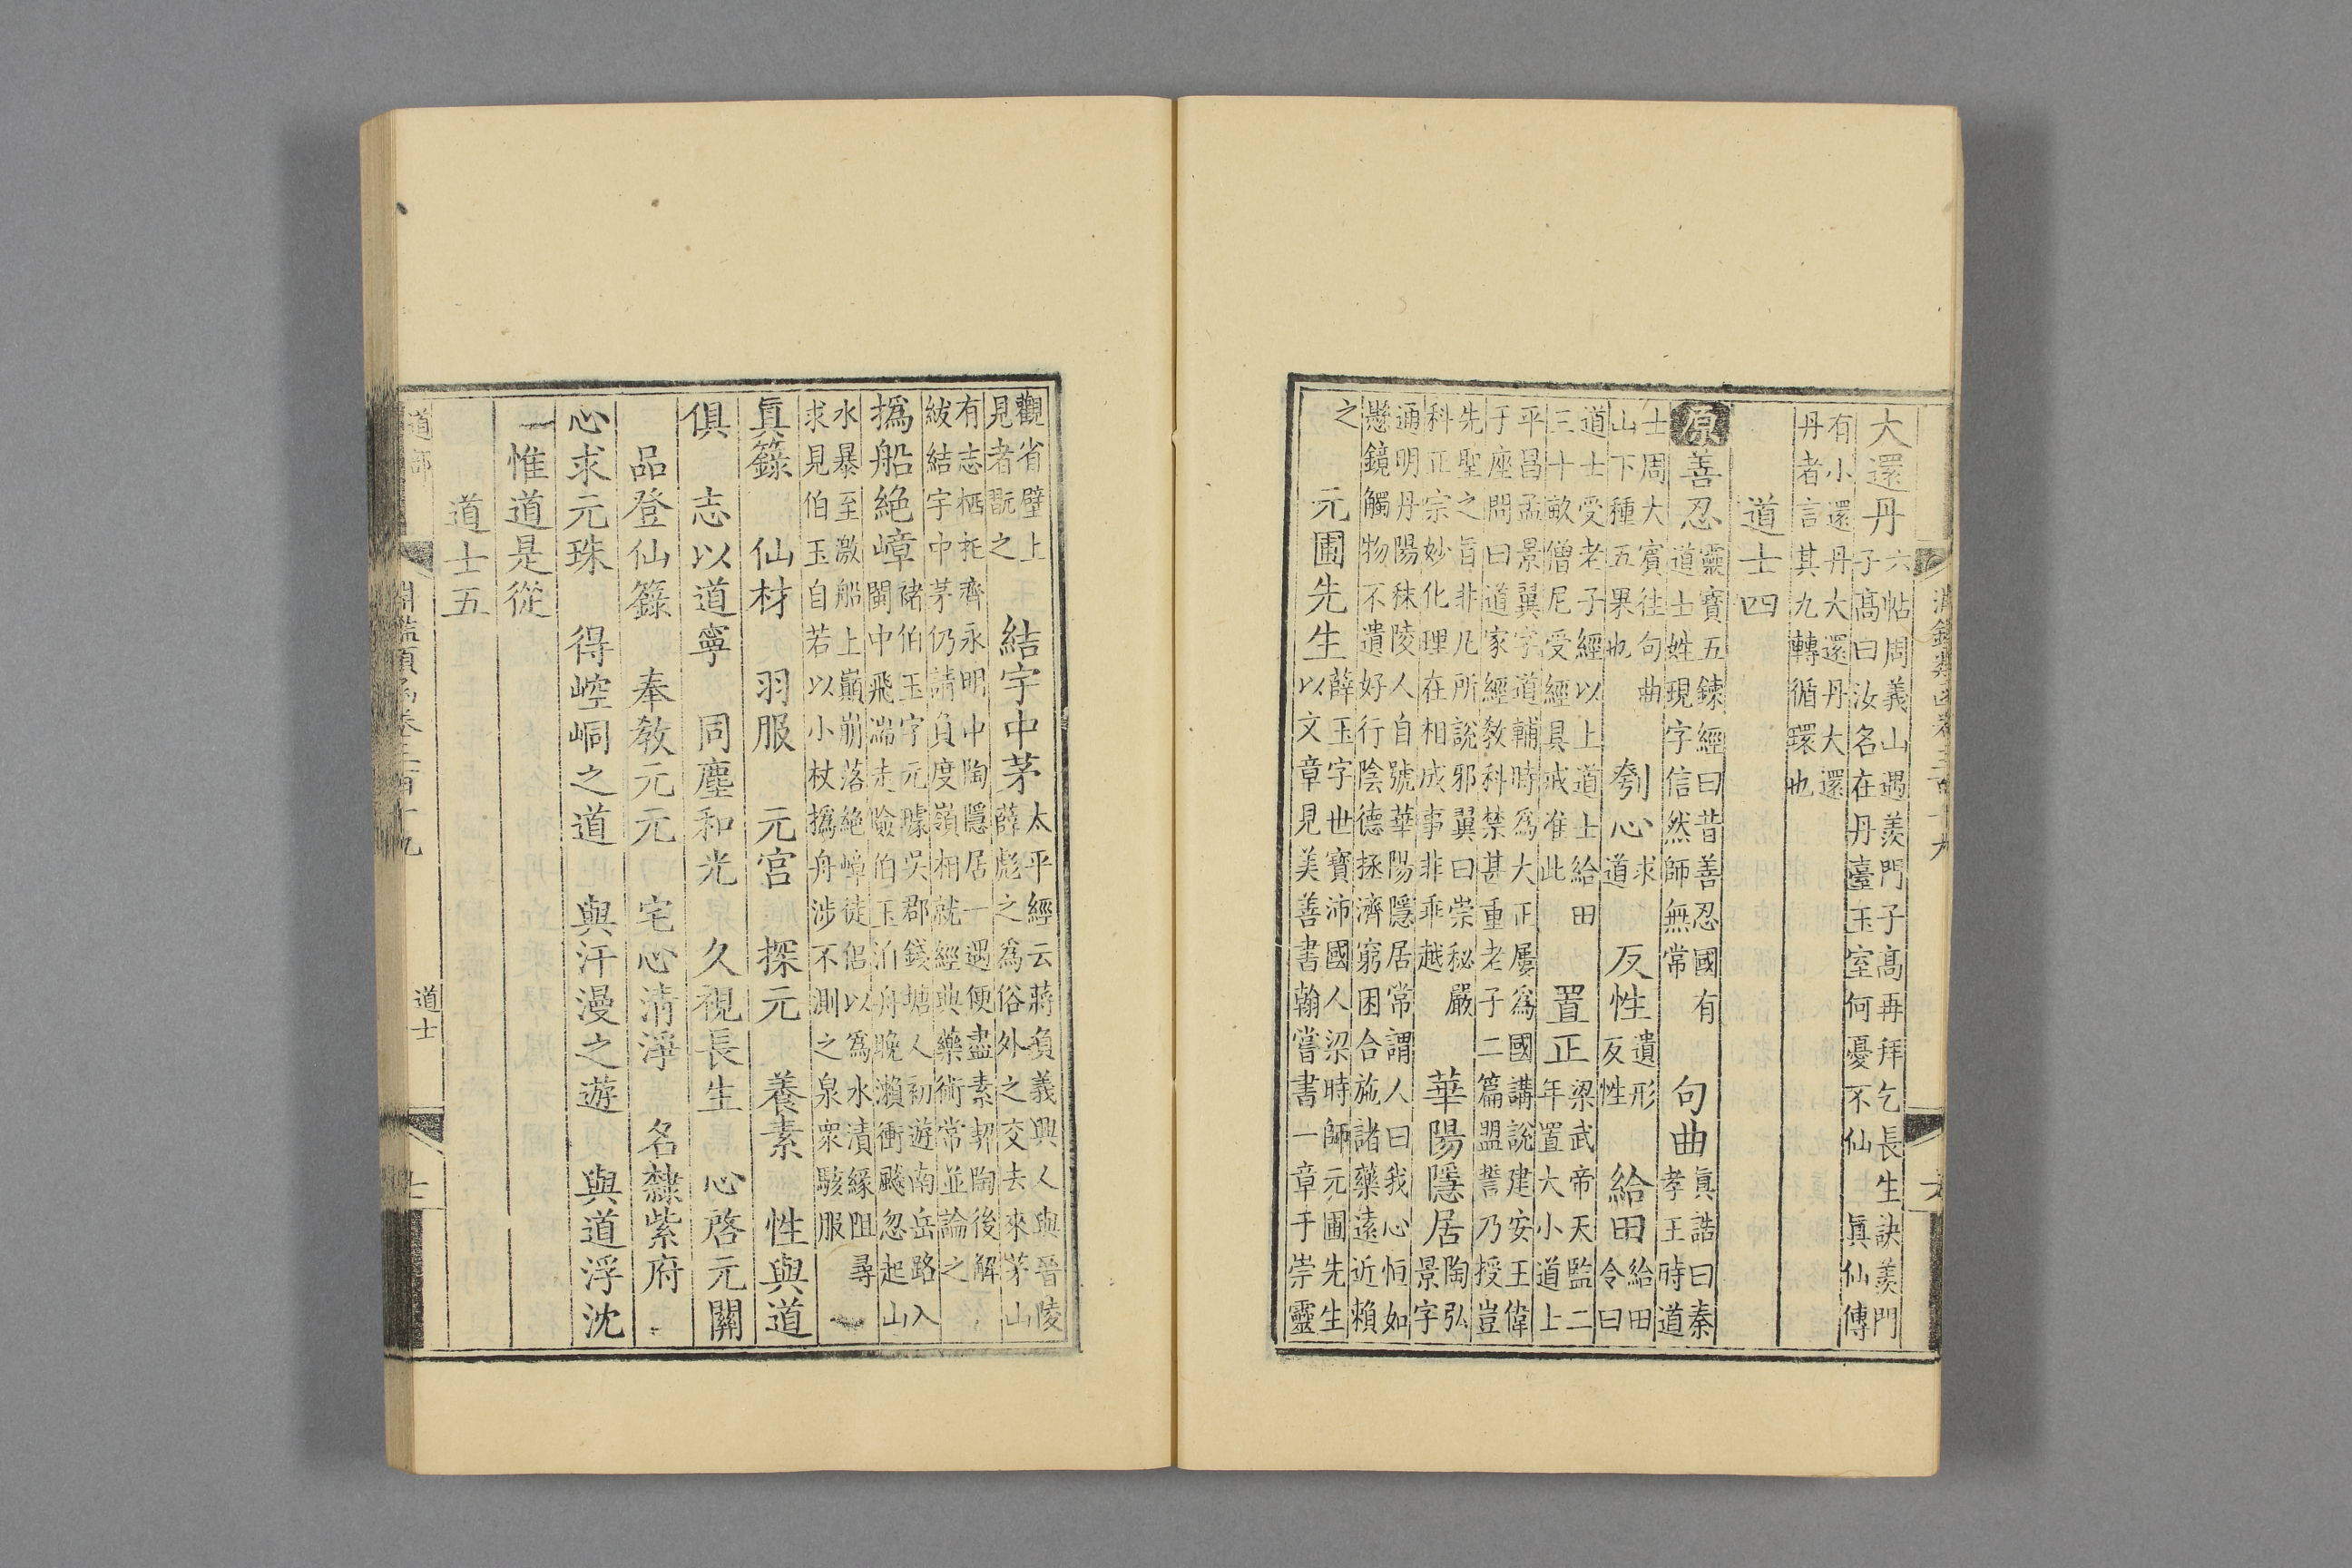 大還丹 六帖周義山遇羨門子高再拜乞長生訣羨門
子高曰汝名在丹臺玉室何憂不仙 眞仙傳
有小還丹大還丹大還
丹者言其九轉循環也
道士四
原善忍 靈寶五鍊經曰昔善忍國有
道士姓現字信然師無常 句曲 眞誥曰秦
孝王時道
士周大賓往句曲
山下種五果也 刳心 求
道 反性 遺形
反性 給田 給田
令曰
道士受老子經以上道士給田
三十畝僧尼受經具戒准此 置正 梁武帝天監二
年置大小道上
平昌孟景翼字道輔時爲大正屢爲國講說建安王偉
于座問曰道家經教科禁甚重老子二篇盟誓乃授豈
先聖之旨非凡所說邪翼曰崇秘嚴
科正宗妙化理在相成事非乖越 華陽隱居 陶弘
景字
通明丹陽秣陵人自號華陽隱居常謂人曰我心恒如
懸鏡觸物不遺好行陰德拯濟窮困合施諸藥遠近賴
之 元圃先生 薛玉字世寶沛國人梁時師元圃先生
以文章見美善書翰嘗書一章于崇靈
觀省壁上
見者翫之 結宇中茅 太平經云蔣負義興人與晉陵
薛彪之爲俗外之交去來茅山
有志栖托齊永明中陶隱居一遇便盡素契陶後解
紱結宇中茅仍請負度嶺相就經典藥術常並論之
撝船絶嶂 褚伯玉字元璩吳郡錢塘人初遊南岳路入
閩中飛湍走險伯玉泊舟晚瀨衝飈忽起山
水暴至激船上巔崩落絶嶂徒侶以爲水漬緣阻尋
求見伯玉自若以小杖撝舟涉不測之泉衆駭服
眞籙 仙材 羽服 元宮 探元 養素 性與道
俱 志以道寧 同塵和光 久視長生 心啓元關
品登仙籙 奉教元元 宅心清淨 名隸紫府
心求元珠 得崆峒之道 與汗漫之遊 與道浮沈
一惟道是從
道士五
道部 淵鑑類函卷三百十九 道士